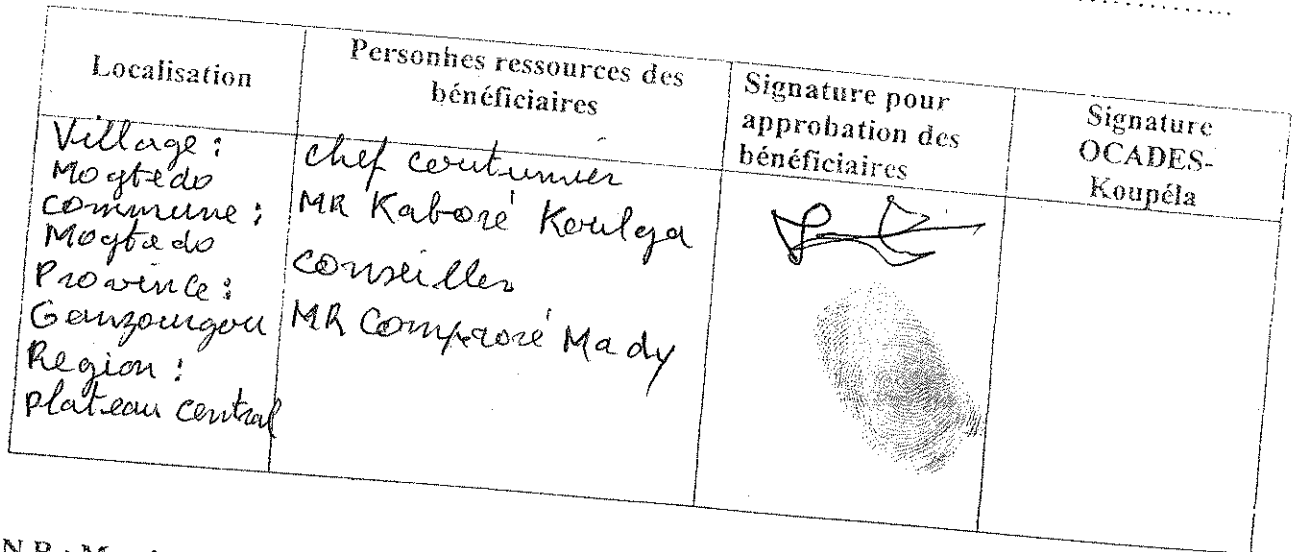 Localisation
Personnes ressources des
bénéficiaires
Signature pour
approbation des
bénéficiaires
Signature
OCADES-
Koupéla
Village :
Mogtedo
Commune :
Mogtedo
Province :
Ganzourgou
Region :
plateau central
chef coutumier
MR Kaboré Koulga
conseiller
MR Compaoré Mady
N.B : M